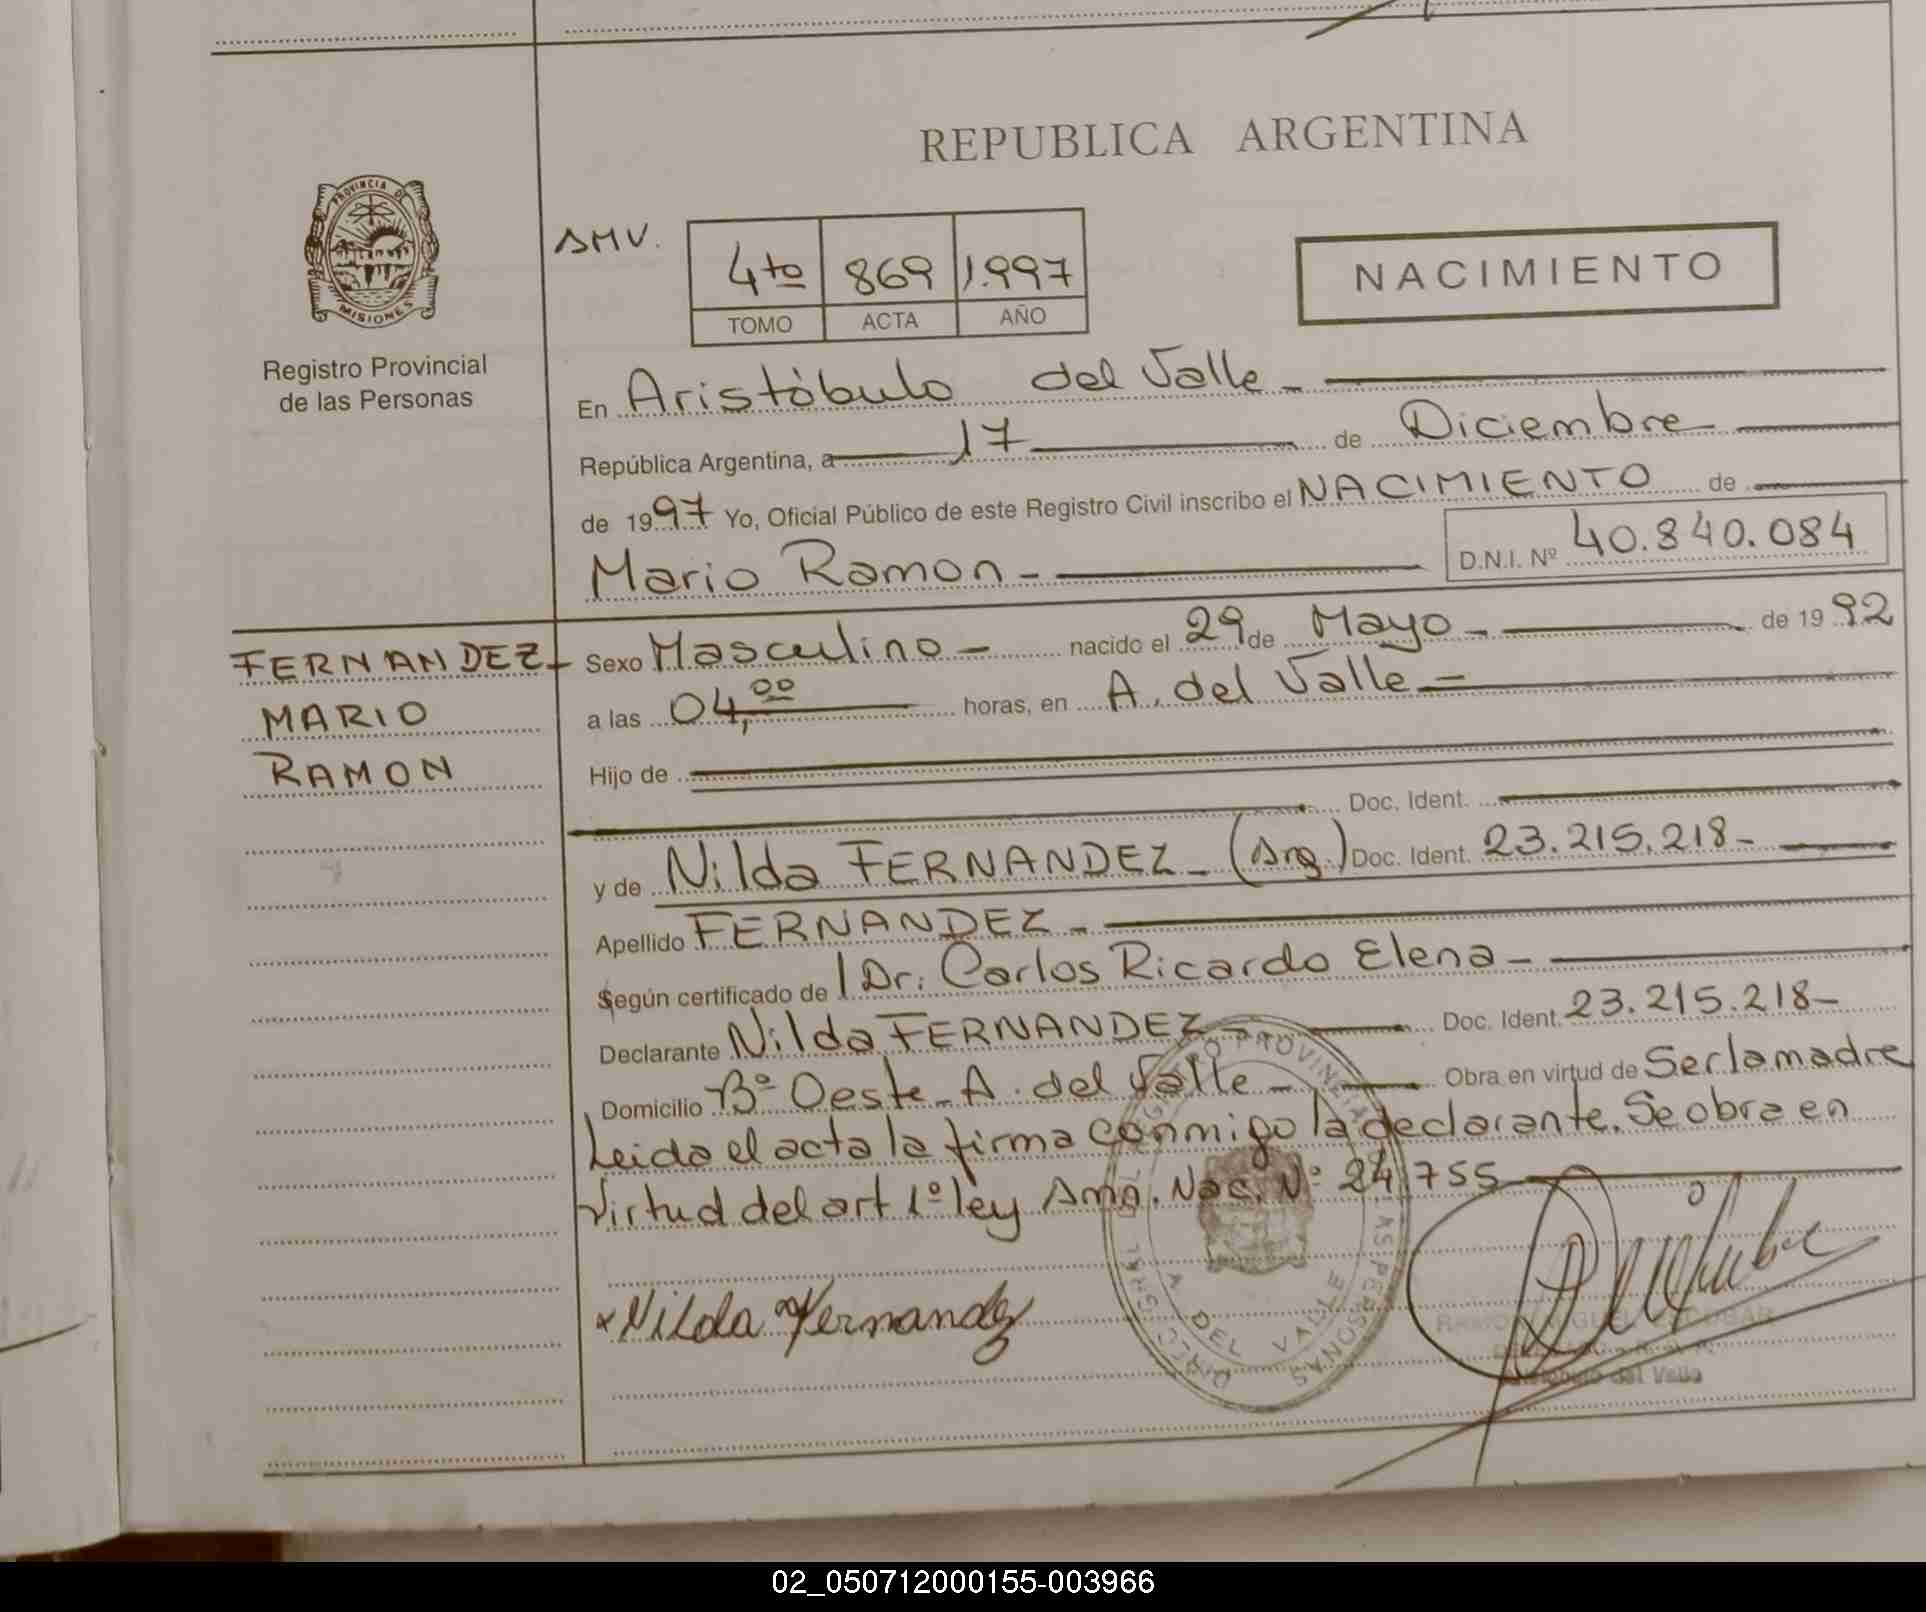 REPUBLICA ARGENTINA
PROVINCIA DE
MISIONES
Registro Provincial
de las Personas
AMV.
4to 869 1.997
TOMO ACTA AÑO
NACIMIENTO
En Aristóbulo del Valle -
República Argentina, a 17 de Diciembre
de 1997 Yo, Oficial Público de este Registro Civil inscribo el NACIMIENTO de
Mario Ramon - D.N.I. Nº 40.840.084
FERNANDEZ -
MARIO
RAMON
Sexo Masculino - nacido el 29 de Mayo - de 1992
a las 04,00 horas, en A. del Valle -
Hijo de
Doc. Ident.
y de Nilda FERNANDEZ - (Arg.) Doc. Ident. 23.215.218 -
Apellido FERNANDEZ -
Según certificado de Dr. Carlos Ricardo Elena -
Declarante Nilda FERNANDEZ - Doc. Ident. 23.215.218 -
Domicilio Bº Oeste - A. del Valle - Obra en virtud de Ser la madre
Leida el acta la firma conmigo la declarante. Se obra en
virtud del art 1º ley Amn. Nac. Nº 24.755
x Nilda Fernandez
A DEL VALLE
RAMON MIGUEL ESCOBAR
Aristobulo del Valle
02_050712000155-003966